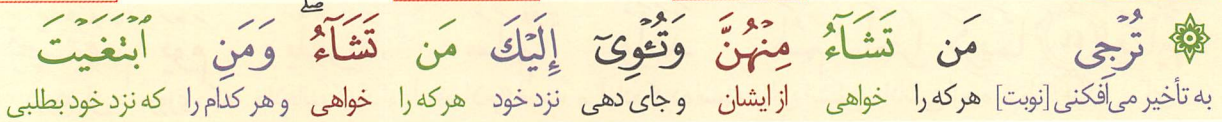 ۞ تُرۡجِی مَن تَشَآءُ مِنۡهُنَّ وَتُـٔۡوِیٓ إِلَیۡكَ مَن تَشَآءُۖ وَمَنِ ٱبۡتَغَیۡتَ
به تأخیر می‌افکنی [نوبت] هر که را خواهی از ایشان و جای دهی نزد خود هر که را خواهی و هر کدام را که نزد خود بطلبی